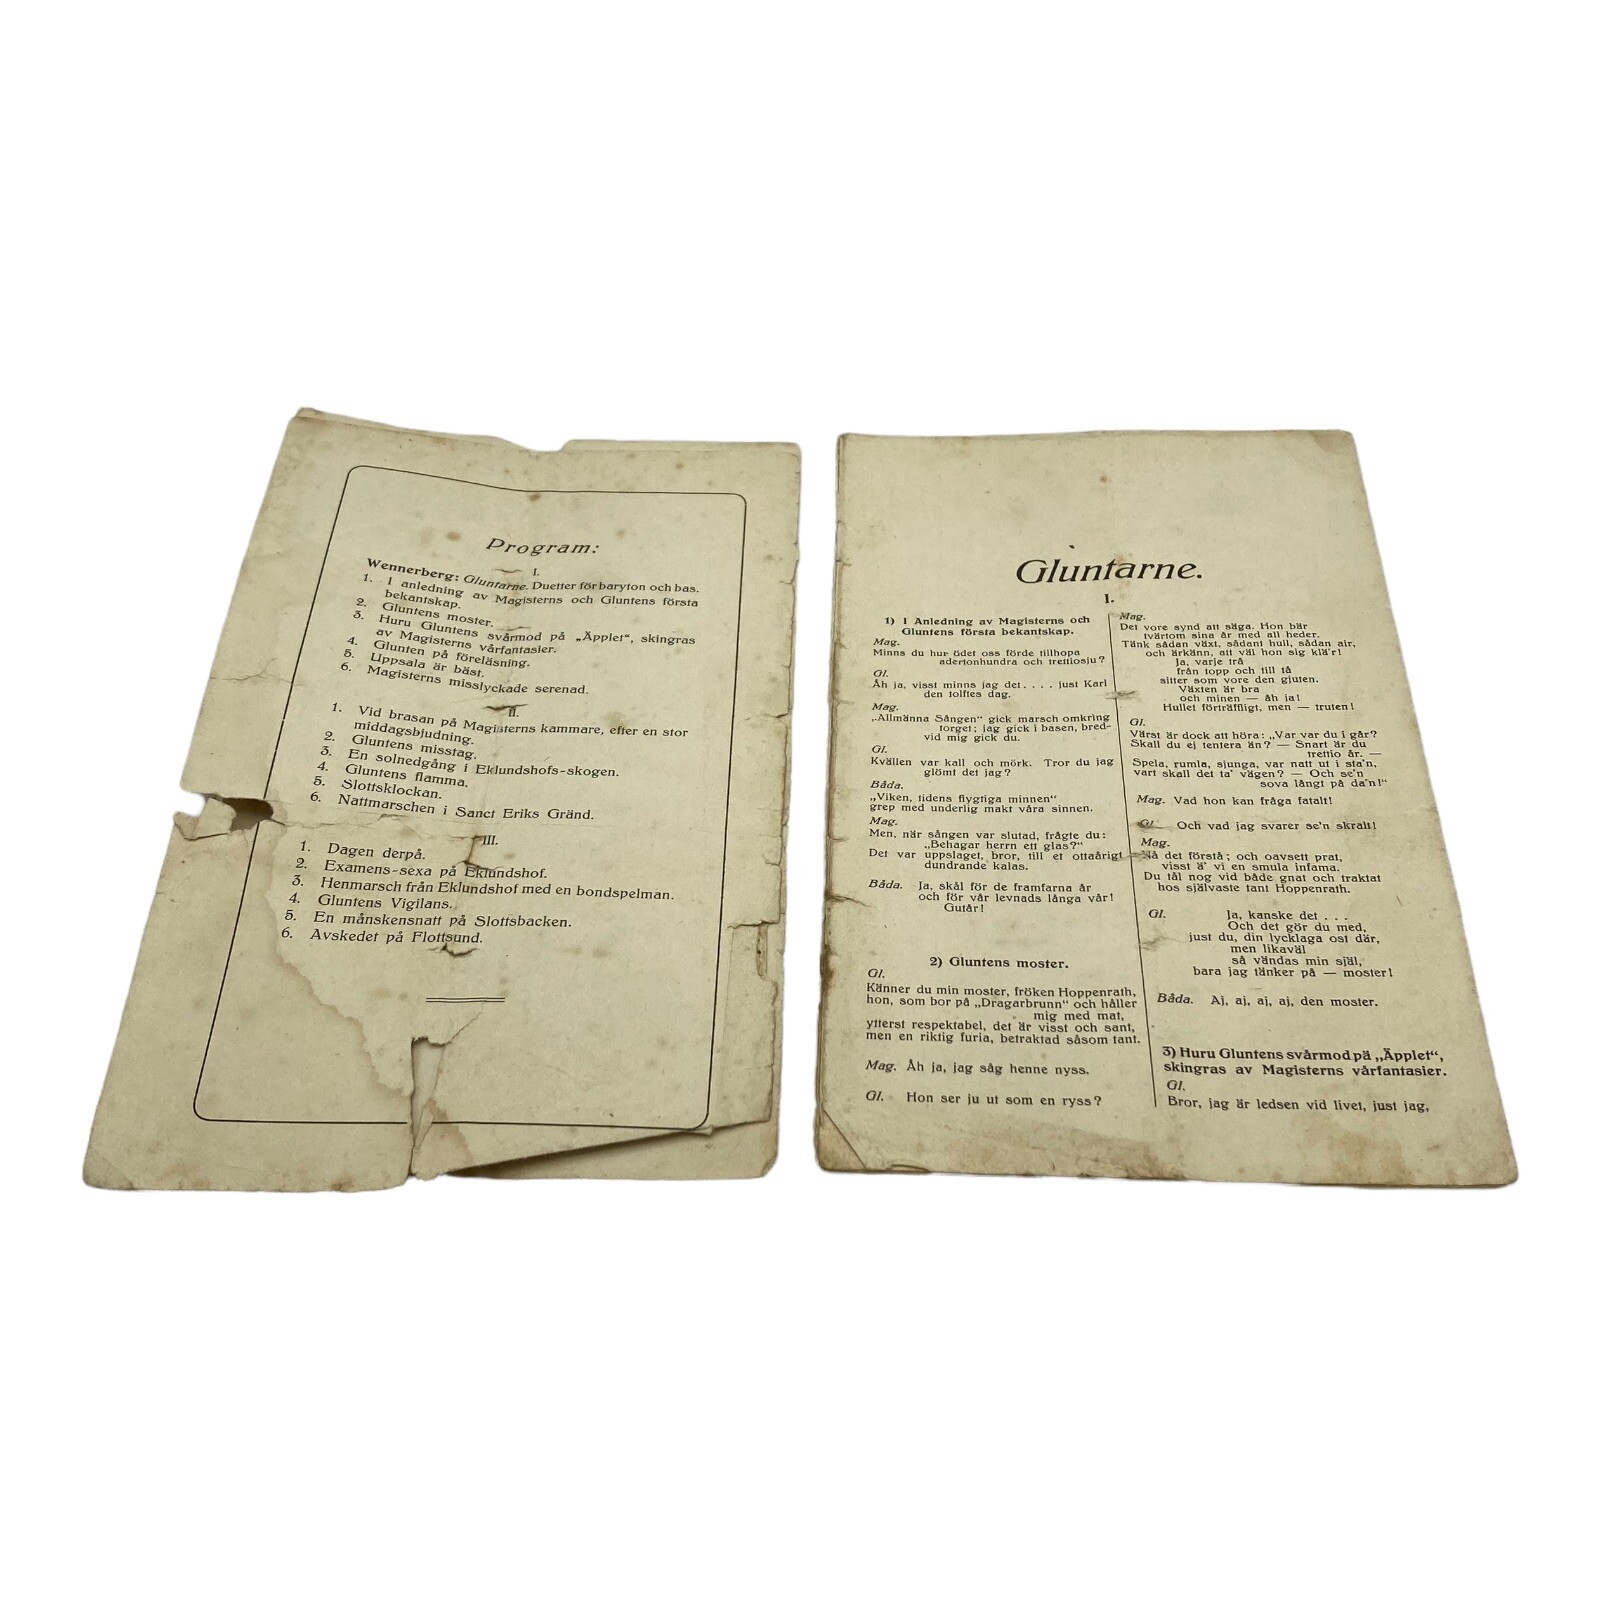 Program:
I.
Wennerberg: Gluntarne. Duetter för baryton och bas.
1. I anledning av Magisterns och Gluntens första
bekantskap.
2. Gluntens moster.
3. Huru Gluntens svårmod på „Äpplet“, skingras
av Magisterns vårfantasier.
4. Glunten på föreläsning.
5. Uppsala är bäst.
6. Magisterns misslyckade serenad.
II.
1. Vid brasan på Magisterns kammare, efter en stor
middagsbjudning.
2. Gluntens misstag.
3. En solnedgång i Eklundshofs-skogen.
4. Gluntens flamma.
5. Slottsklockan.
6. Nattmarschen i Sanct Eriks Gränd.
III.
1. Dagen derpå.
2. Examens-sexa på Eklundshof.
3. Henmarsch från Eklundshof med en bondspelman.
4. Gluntens Vigilans.
5. En månskensnatt på Slottsbacken.
6. Avskedet på Flottsund.
Gluntarne.
I.
1) I Anledning av Magisterns och
Gluntens första bekantskap.
Mag.
Minns du hur ödet oss förde tillhopa
adertonhundra och trettiosju?
Gl.
Åh ja, visst minns jag det. . . . just Karl
den tolftes dag.
Mag.
„Allmänna Sången“ gick marsch omkring
torget; jag gick i basen, bred-
vid mig gick du.
Gl.
Kvällen var kall och mörk. Tror du jag
glömt det jag?
Båda.
„Viken, tidens flygtiga minnen“
grep med underlig makt våra sinnen.
Mag.
Men, när sången var slutad, frågte du:
„Behagar herrn ett glas?“
Det var uppslaget, bror, till et ottaårigt
dundrande kalas.
Båda. Ja, skål för de framfarna år
och för vår levnads långa vår!
Gutår!
2) Gluntens moster.
Gl.
Känner du min moster, fröken Hoppenrath,
hon, som bor på „Dragarbrunn“ och håller
mig med mat,
ytterst respektabel, det är visst och sant,
men en riktig furia, betraktad såsom tant.
Mag. Åh ja, jag såg henne nyss.
Gl. Hon ser ju ut som en ryss?
Mag.
Det vore synd att säga. Hon bär
tvärtom sina år med all heder.
Tänk sådan växt, sådant hull, sådan air,
och ärkänn, att väl hon sig klä'r!
Ja, varje trå
från topp och till tå
sitter som vore den gjuten.
Växten är bra
och minen — åh ja!
Hullet förträffligt, men — truten!
Gl.
Värst är dock att höra: „Var var du i går?
Skall du ej tentera än? — Snart är du
trettio år. —
Spela, rumla, sjunga, var natt ut i sta'n,
vart skall det ta' vägen? — Och se'n
sova långt på da'n!“
Mag. Vad hon kan fråga fatalt!
Gl. Och vad jag svarer se'n skralt!
Mag.
Nå det förstå; och oavsett prat,
visst ä' vi en smula infama.
Du tål nog vid både gnat och traktat
hos självaste tant Hoppenrath.
Gl. Ja, kanske det . . .
Och det gör du med,
just du, din lycklaga ost där,
men likaväl
så vändas min själ,
bara jag tänker på — moster!
Båda. Aj, aj, aj, aj, den moster.
3) Huru Gluntens svårmod på „Äpplet“,
skingras av Magisterns vårfantasier.
Gl.
Bror, jag är ledsen vid livet, just jag,